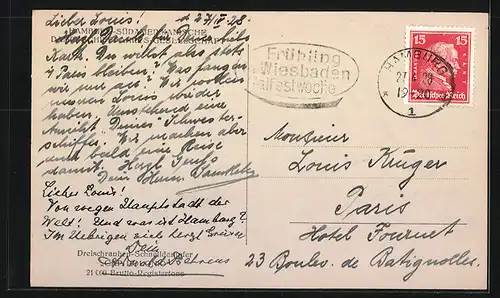 Lieber Louis! d 27/IV. 28.
HAMBURG-SÜDAMERIKANISCHE
Karte. Du willst also stets
i/ Paris bleiben? Was fangen
wir nur an? Wir wollen
unsern Louis wieder
haben. Umstehend eine
Ansicht "Deines" Schwester-
schiffes. Wir machen aber
auch bald eine Reise
damit. Herzl. Gruß
Dein
Lieber Louis!
Von wegen Hauptstadt der
Welt! Und was ist Hamburg?
Im Uebrigen viel herzl. Grüsse
Dein
Behrens
Dreischrauben-Schnelldampfer
Brutto-Registertons
Frühling
Wiesbaden
Maifestwoche
HAMBURG
27
28
19
* 1
15 15
Deutsches Reich
Monsieur
Louis Krüger
Paris
Hotel Fournet
23 Boulev. de Batignolles.